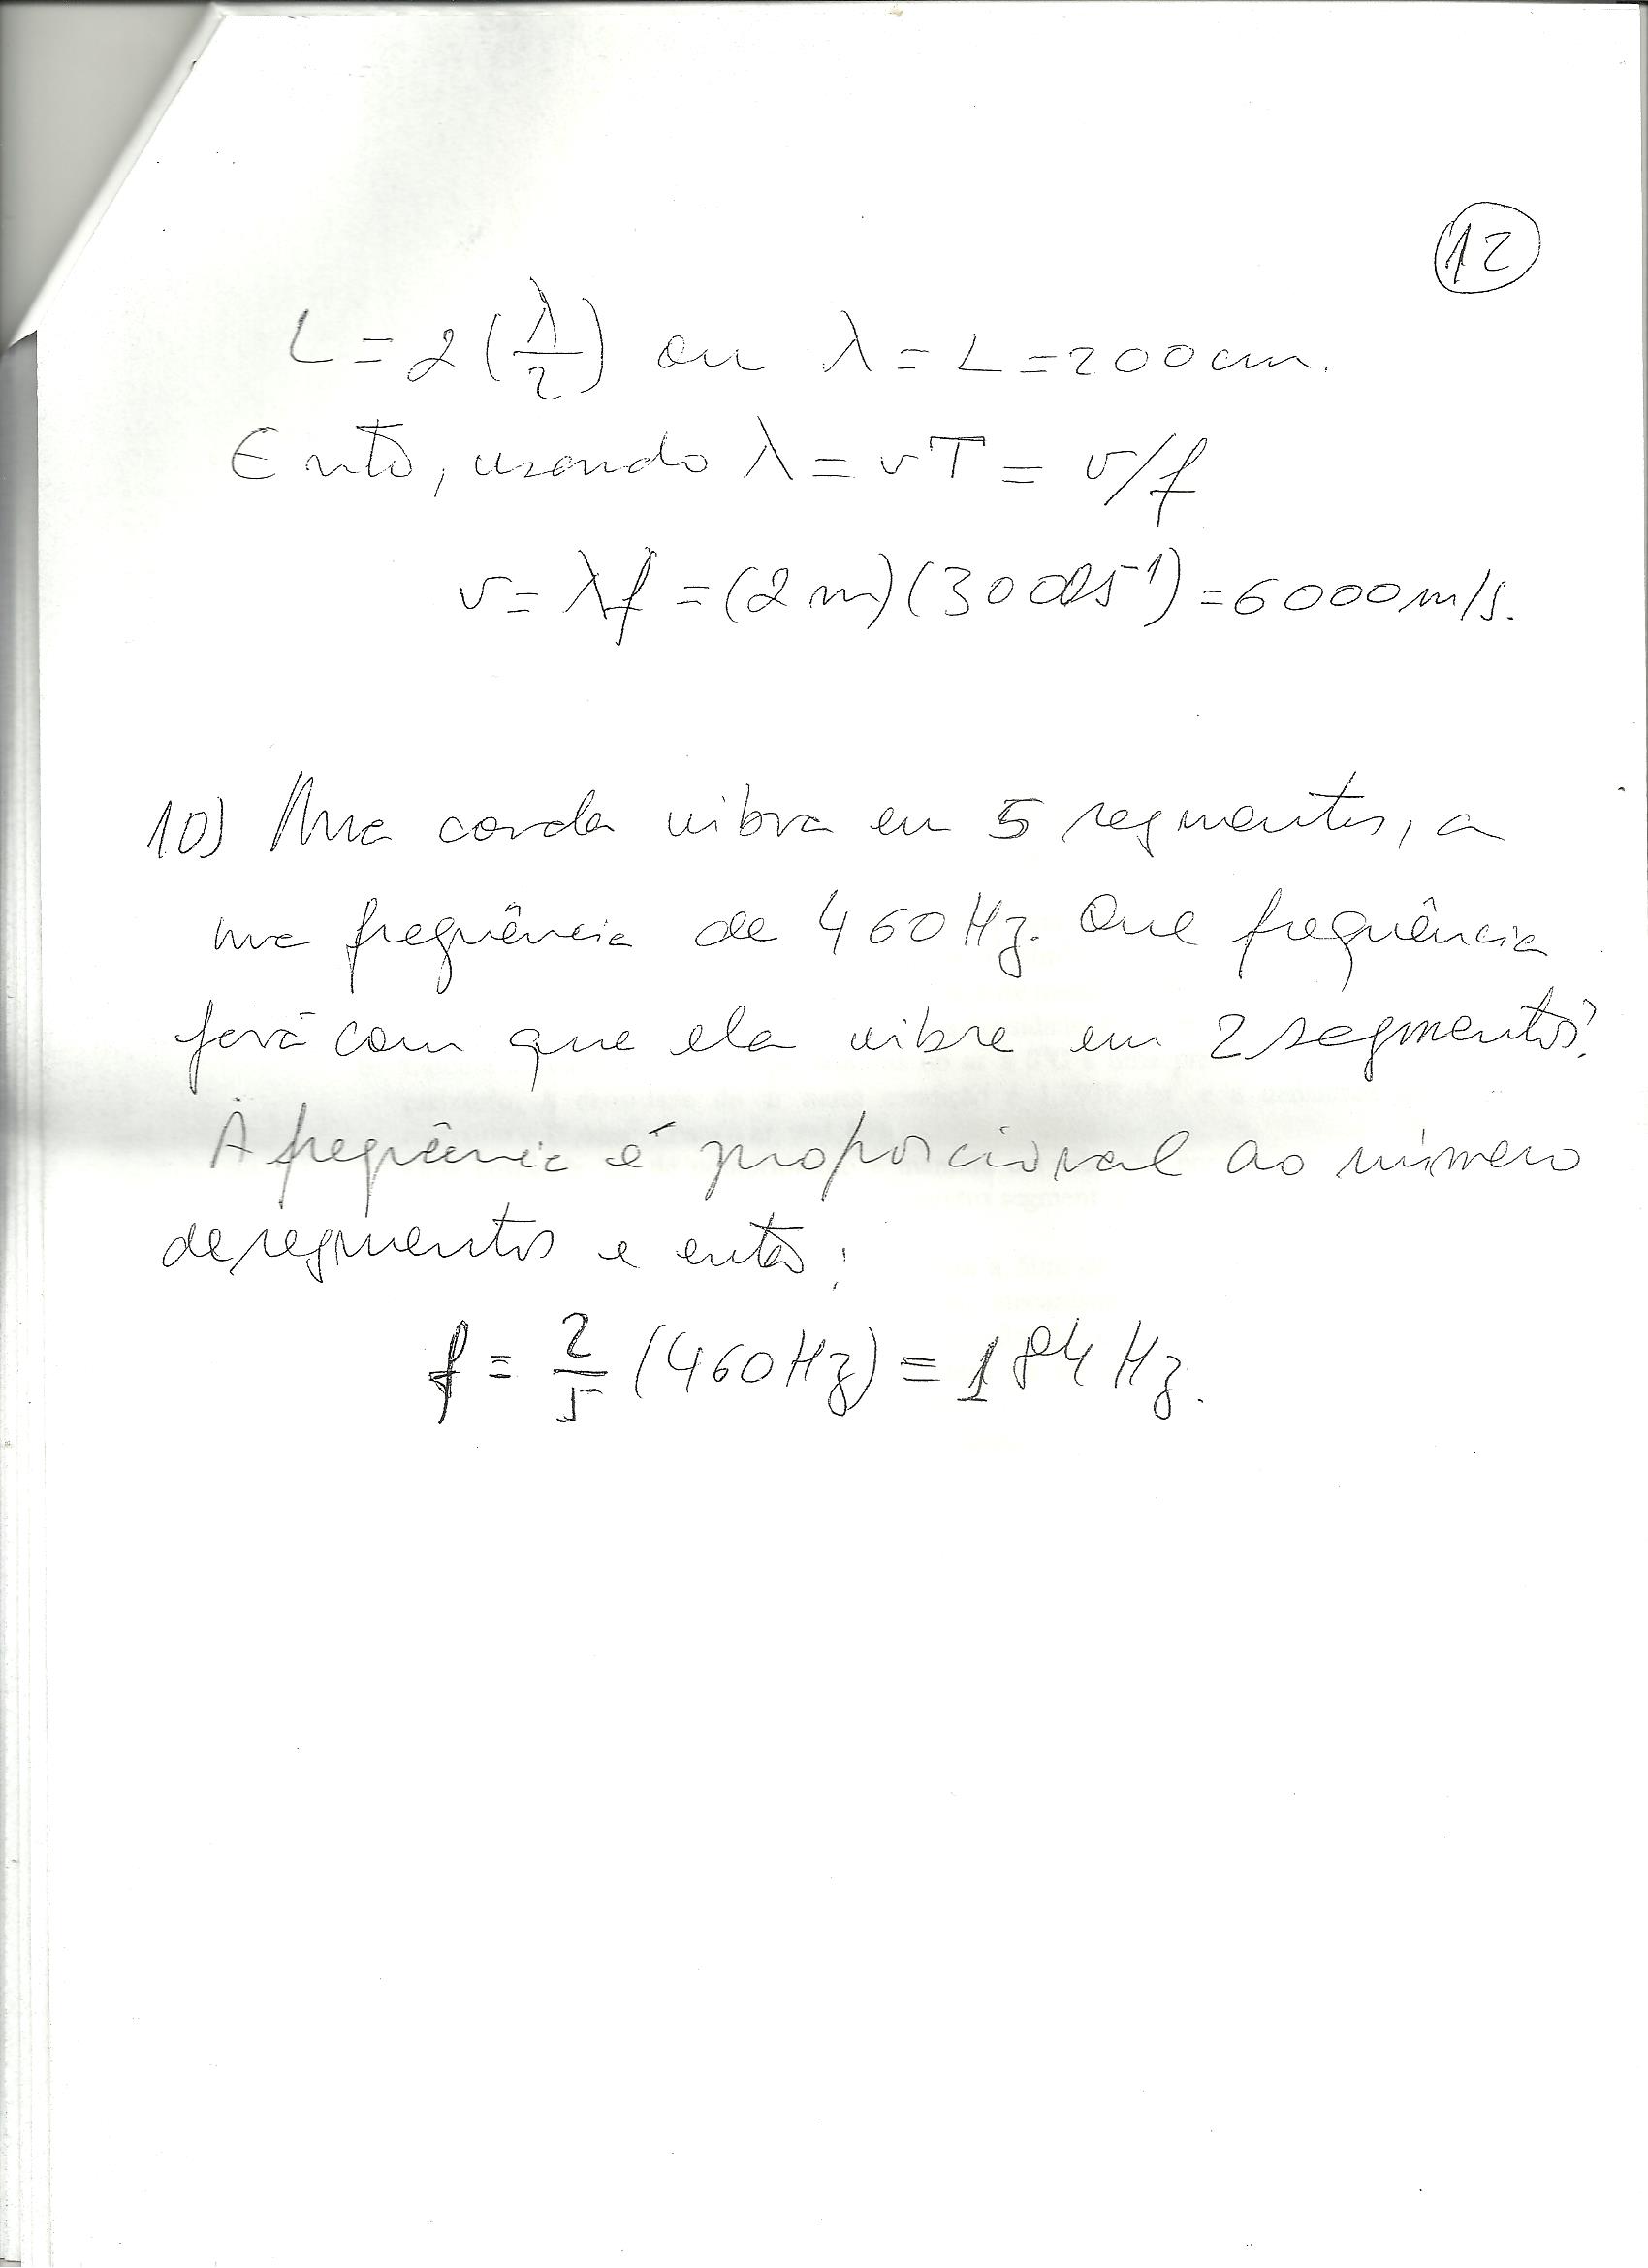 12
L = 2 (λ/2) ou λ = L = 200 cm.
Entõ, usando λ = vT = v/f
v = λf = (2m)(3000s⁻¹) = 6000 m/s.
10) Uma corda vibra em 5 segmentos, a
uma frequência de 460 Hz. Que frequência
fará com que ela vibre em 2 segmentos?
A frequência é proporcional ao número
de segmentos e então:
f = 2/5 (460 Hz) = 184 Hz.